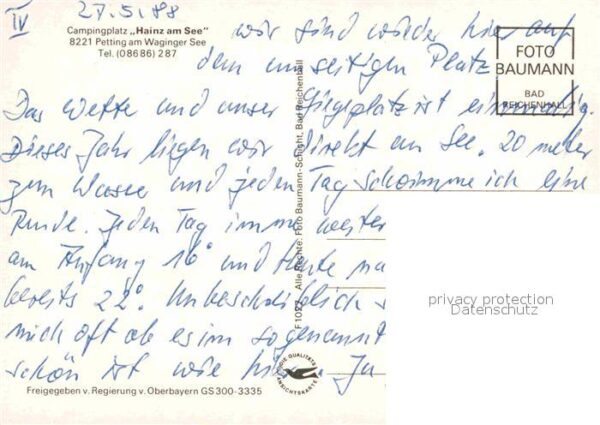 IV
27.5.88
Campingplatz „Hainz am See"
8221 Petting am Waginger See
Tel. (08686) 287
FOTO
BAUMANN
BAD
REICHENHALL
wir sind wieder hier auf
dem Platz
Das Wetter und unser Liegeplatz ist einmalig.
Dieses Jahr liegen wir direkt am See. 20 meter
zum Wasser und jeden Tag schwimme ich eine
Runde. Jeden Tag immer weiter
am Anfang 16° und heute
bereits 22°. Unbeschreiblich
mich oft ob es im sogenannt
schön ist wie hier. Ja
F1097 Alle Rechte: Foto Baumann-Schicht, Bad Reichenhall
DIE QUALITÄTS
ANSICHTSKARTE
Freigegeben v. Regierung v. Oberbayern GS 300-3335
privacy protection
Datenschutz